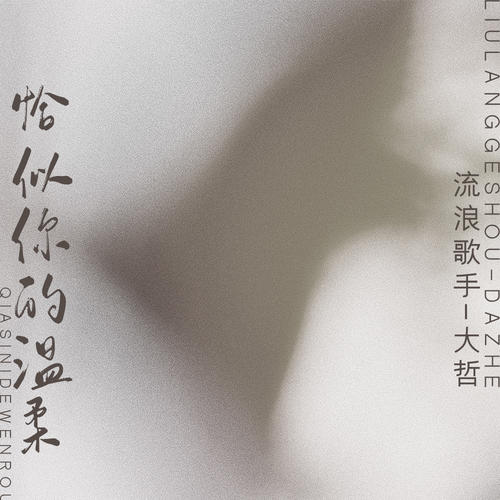 恰似你的温柔
QIASINIDEWENROU
流浪歌手-大哲
LIULANGGESHOU-DAZHE